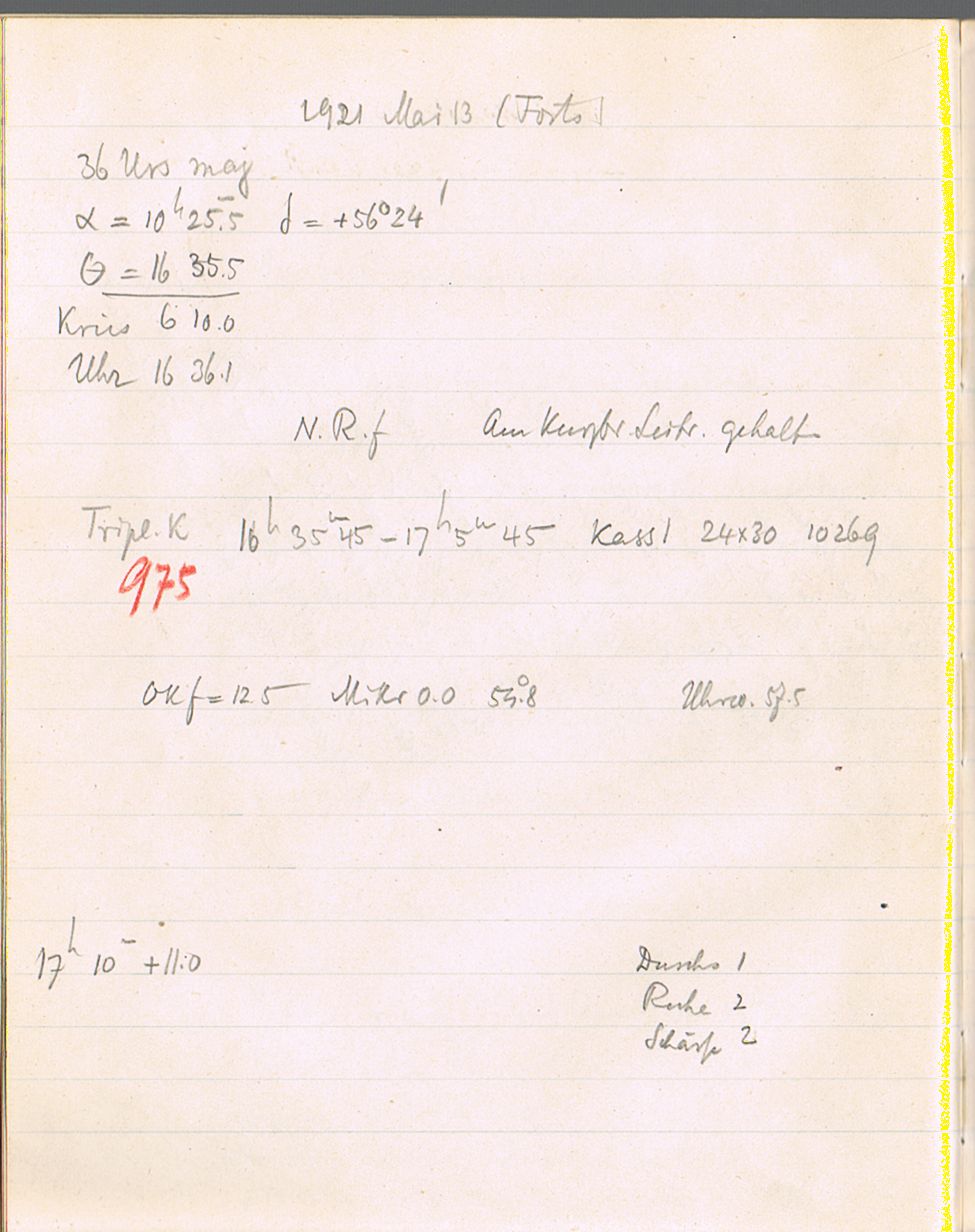 1921 Mai 13 (Forts)
36 Urs maj
α = 10ʰ 25ᵐ.5 δ = +56°24'
Θ = 16 35.5
Kreis 6 10.0
Uhr 16 36.1
N. R. f Am Leitr. gehalt
Tripl. K 16ʰ 35ᵐ 45 – 17ʰ 5ᵐ 45 Kass 1 24x30 10269
975
OK f = 12.5 Mikr 0.0 Uhrw. 57.5
17ʰ 10ᵐ +11.0
Durchs 1
Ruhe 2
Schärfe 2